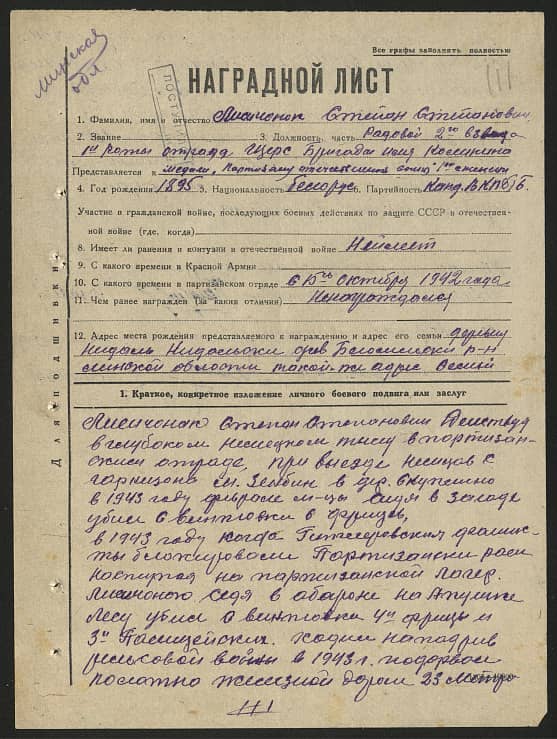 Минская
обл
Все графы заполнять полностью
НАГРАДНОЙ ЛИСТ
1. Фамилия, имя и отчество Лисичонок Степан Степанович
2. Звание 3. Должность, часть Рядовой 2го взвода
1й роты отряда Щорс Бригада
Представляется к медали, Партизану отечественной войны" 1ой степени
4. Год рождения 1895 5. Национальность белорус 6. Партийность Канд. ВКП(б)
Участие в гражданской войне, последующих боевых действиях по защите СССР и отечествен-
ной войне (где, когда)
8. Имеет ли ранения и контузии в отечественной войне
9. С какого времени в Красной Армии
10. С какого времени в партизанском отряде с 15го октября 1942 года
11. Чем ранее награжден (за какие отличия) Ненаграждался
12. Адрес места рождения представляемого к награждению и адрес его семьи деревня
р-н
области такой-же адрес
Для подшивки
1. Краткое, конкретное изложение личного боевого подвига или заслуг
Лисичонок Степан Степанович Действуя
в глубоком немецком тылу в партизан-
отряде, при выезде немцов с
гарнизона Зембин в дер.
в 1943 году феврале м-цы сидя в засаде
убил с винтовки 2 фрицев,
в 1943 году когда Гитлеровским фашис-
ты блокировали Партизански
на партизанской лагер.
сидя в обароне на
Лесу убил с винтовки 4и фрицы и
3и ходил на
рельсовой войны в 1943 г. подорвал
железной дороги 23